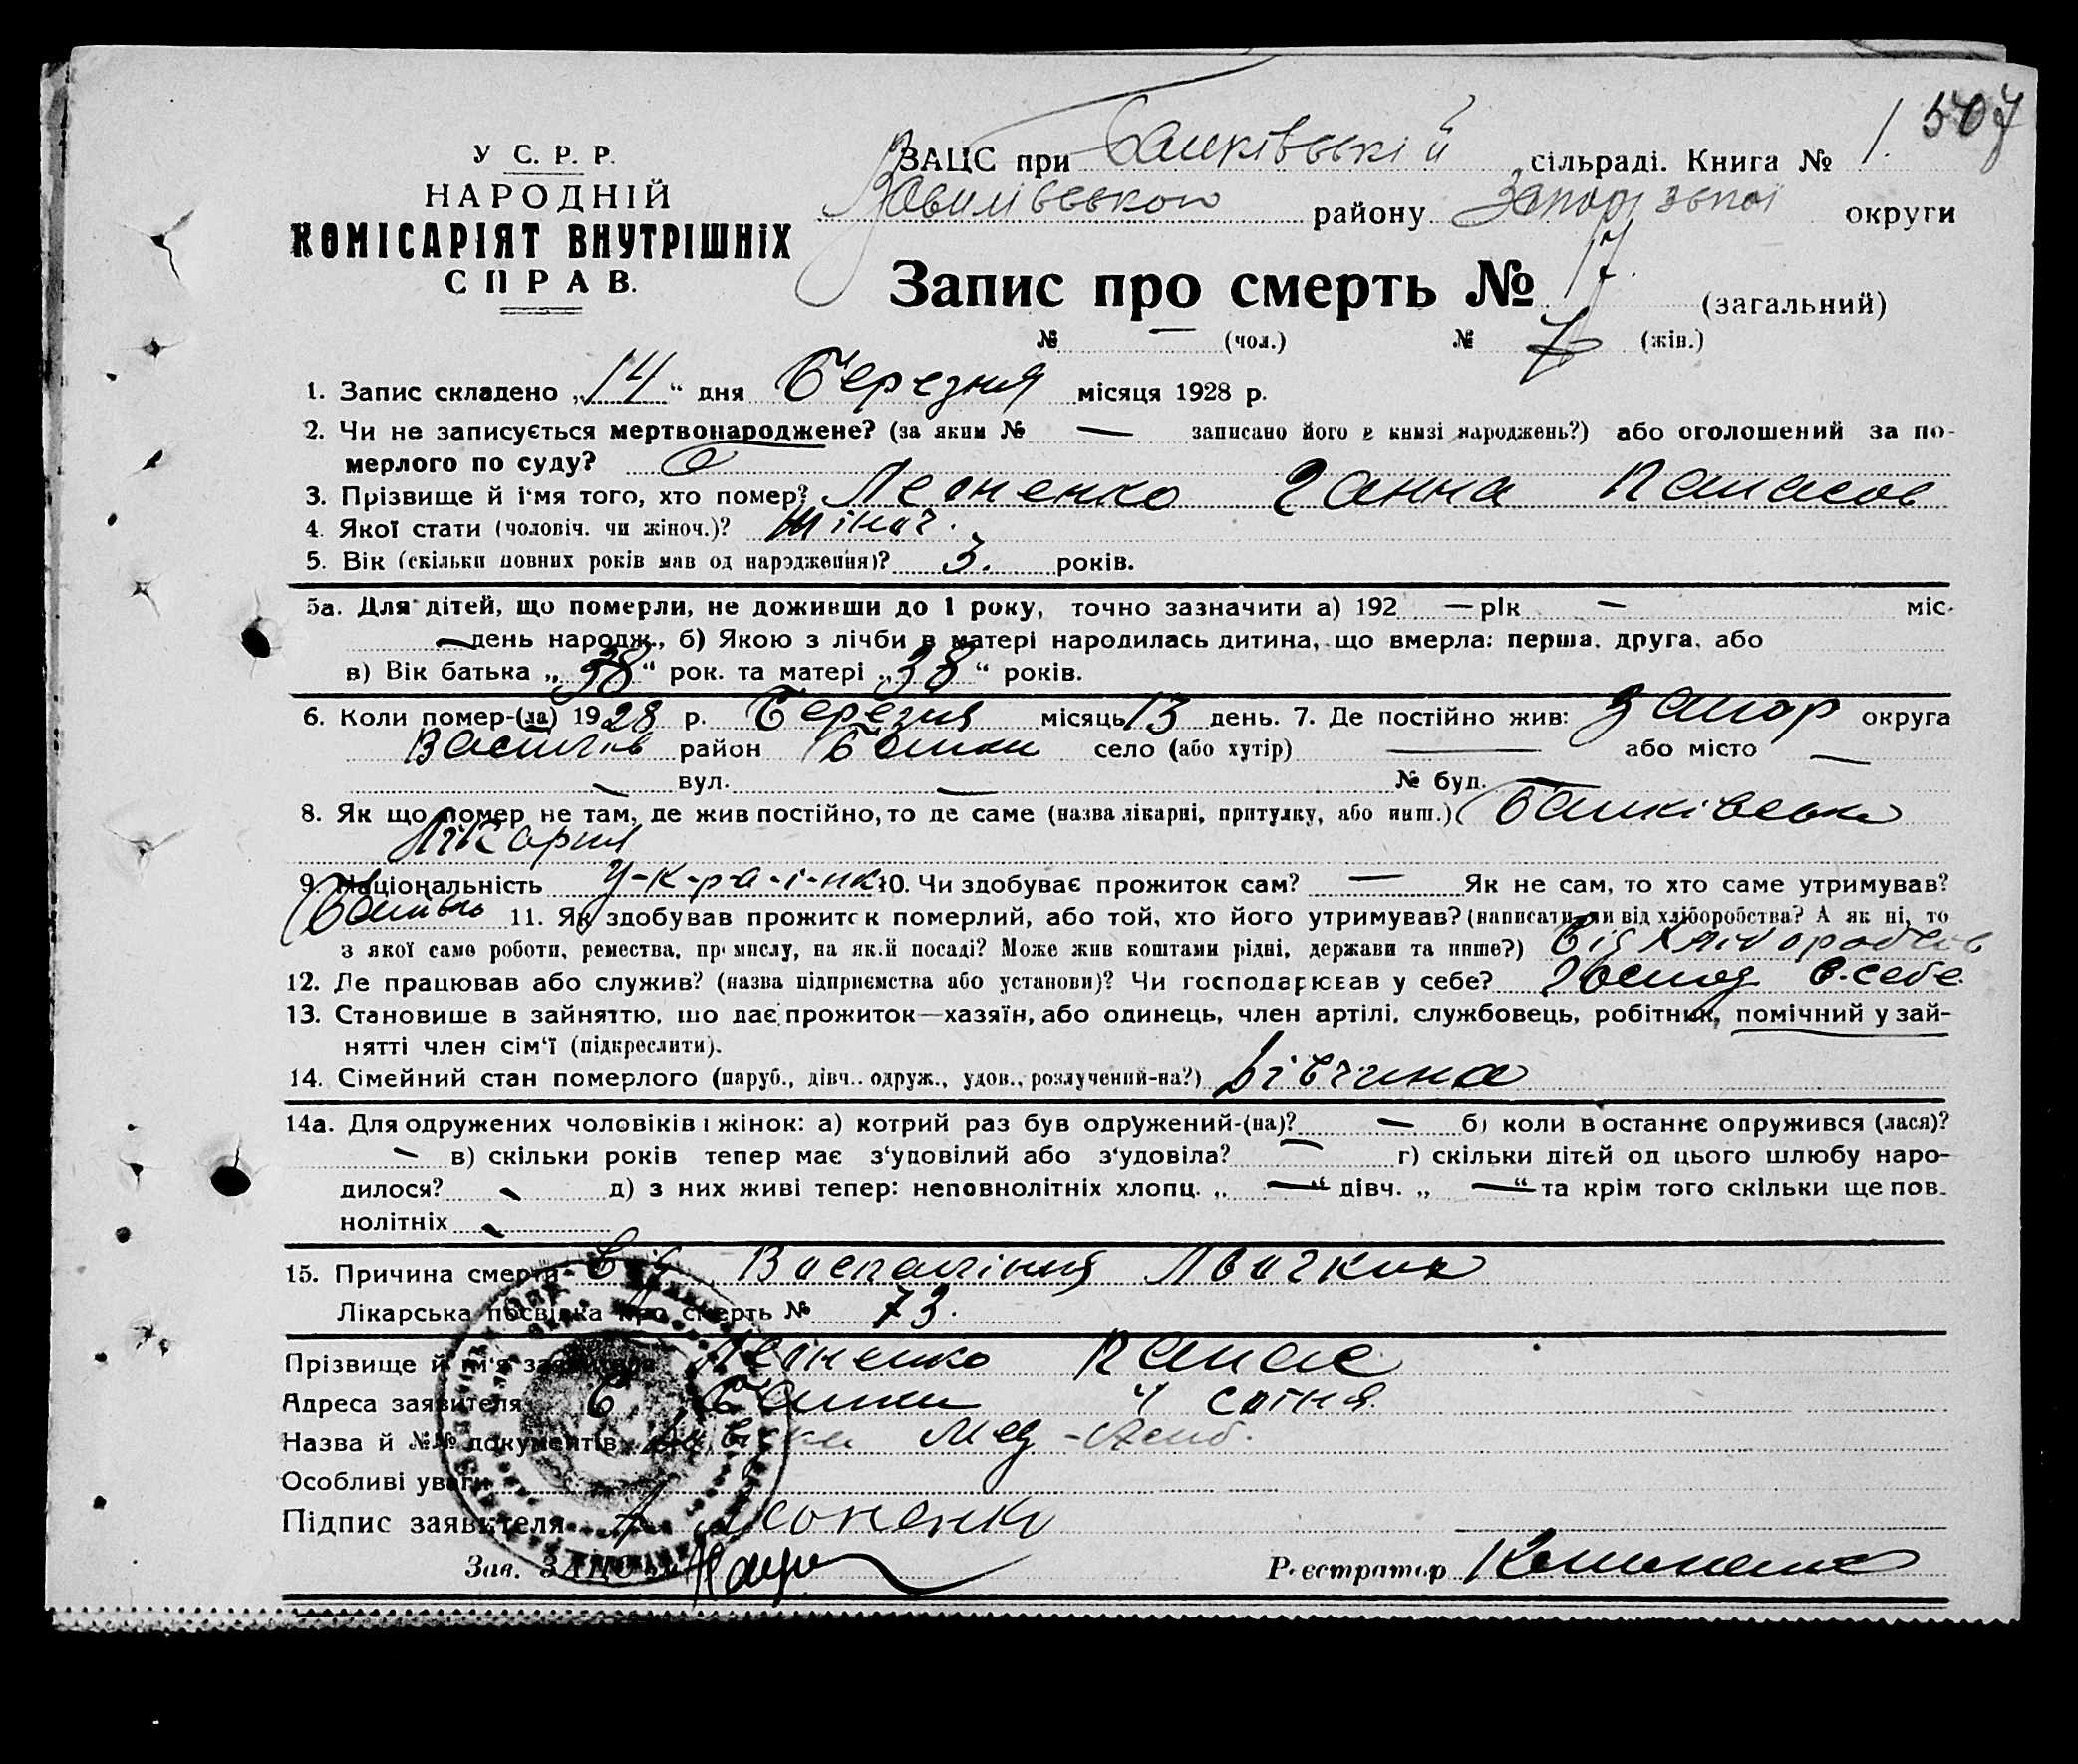 507
У С. Р. Р.
НАРОДНІЙ
КОМІСАРІЯТ ВНУТРІШНІХ
СПРАВ.
ЗАЦС при Балківській сільраді. Книга № 1.
Василівського району Запорізької округи
Запис про смерть № 17. (загальний)
№ — (чол.) № 7 (жін.)
1. Запис складено „14“ дня Березня місяця 1928 р.
2. Чи не записується мертвонароджене? (за яким № — записано його в книзі народжень?) або оголошений за по-
мерлого по суду?
3. Прізвище й і'мя того, хто помер? Леоненко Ганна Панасов
4. Якої стати (чоловіч. чи жіноч.)? жіноч.
5. Вік (скільки повних років мав од народження)? 3. років.
5а. Для дітей, що померли, не доживши до 1 року, точно зазначити а) 192 — рік — міс.
— день народж., б) Якою з лічби в матері народилась дитина, що вмерла: перша, друга, або
в) Вік батька „38“ рок. та матері „38“ років.
6. Коли помер-(ла) 1928 р. Березня місяць 13 день. 7. Де постійно жив: Запор округа
Василів район Балки село (або хутір) — або місто —
— вул. — № буд. —
8. Як що помер не там, де жив постійно, то де саме (назва лікарні, притулку, або инш.) Балківська
лікарня
9. Національність у-к-р-а-ї-нк 10. Чи здобуває прожиток сам? — Як не сам, то хто саме утримував?
Батько 11. Як здобував прожиток померлий, або той, хто його утримував? (написати, чи від хліборобства? А як ні, то
з якої само роботи, ремества, промислу, на якій посаді? Може жив коштами рідні, держави та инше?) Від хліборобств
12. Де працював або служив? (назва підприємства або установи)? Чи господарював у себе? Господ в-себе
13. Становище в зайняттю, що дає прожиток—хазяїн, або одинець, член артілі, службовець, робітник, помічний у зай-
нятті член сім'ї (підкреслити).
14. Сімейний стан померлого (паруб., дівч.. одруж., удов., розлучений-на?) Дівчина
14а. Для одружених чоловіків і жінок: а) котрий раз був одружений-(на)? — б) коли в останнє одружився (лася)?
— в) скільки років тепер має з'удовілий або з'удовіла? — г) скільки дітей од цього шлюбу наро-
дилося? — д) з них живі тепер: неповнолітніх хлопц. „—“ дівч. „—“ та крім того скільки ще пов.
нолітніх —
15. Причина смерти Від Воспаління
Лікарська посвідка про смерть № 73.
Прізвище й ім'я заявителя Леоненко Панас
Адреса заявителя с Балки 4 сотня
Назва й №№ документів Довідка Мед-Амб.
Особливі уваги
Підпис заявителя Леоненко
Зав. ЗАЦС'ом
Реєстратор